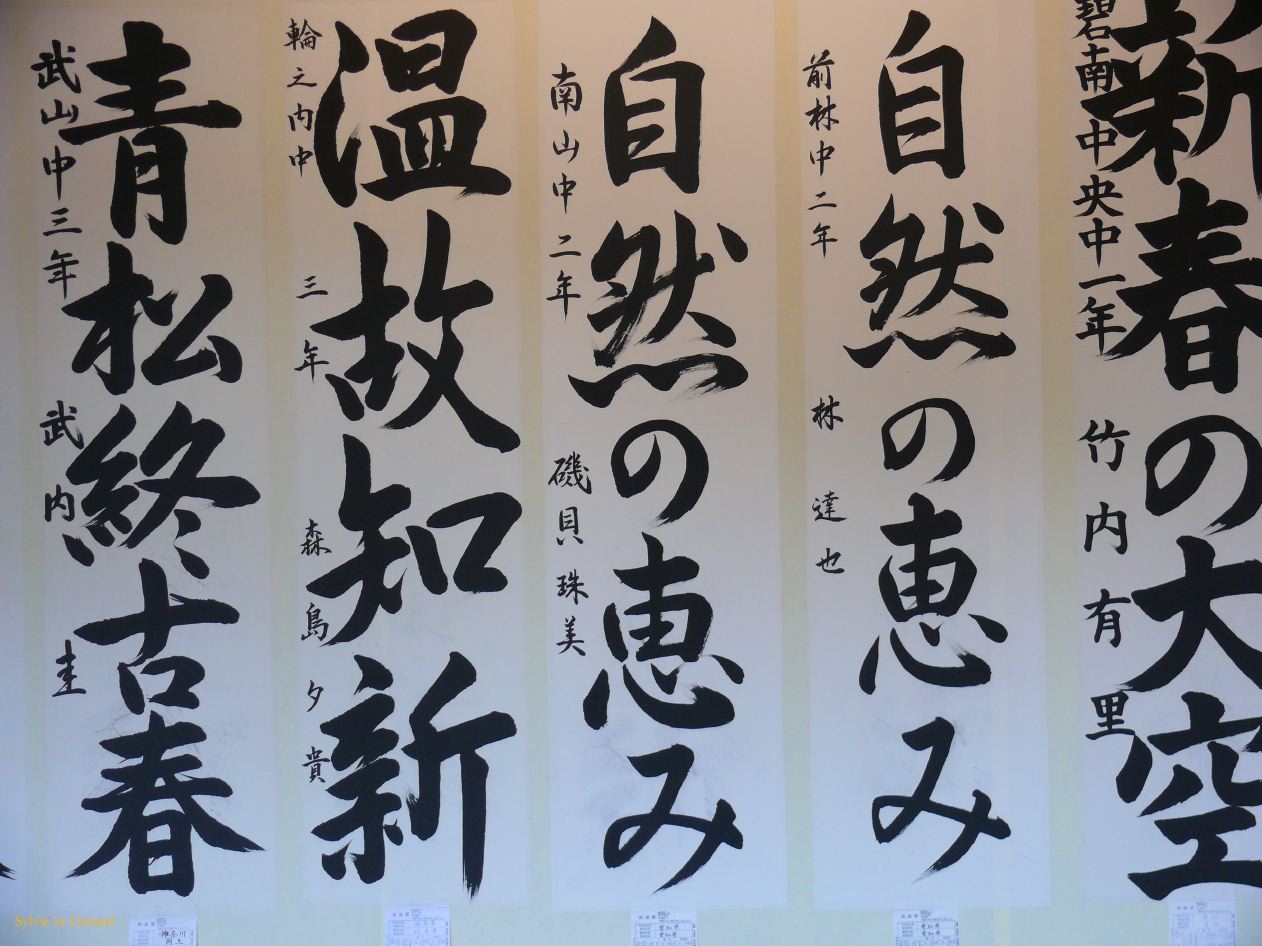 新春の大空
碧南中央中一年 竹内有里
自然の恵み
前林中二年 林達也
自然の恵み
南山中二年 磯貝珠美
温故知新
輪之内中 三年 森島夕貴
青松終古春
武山中三年 武内圭
愛知県
愛知県
神奈川